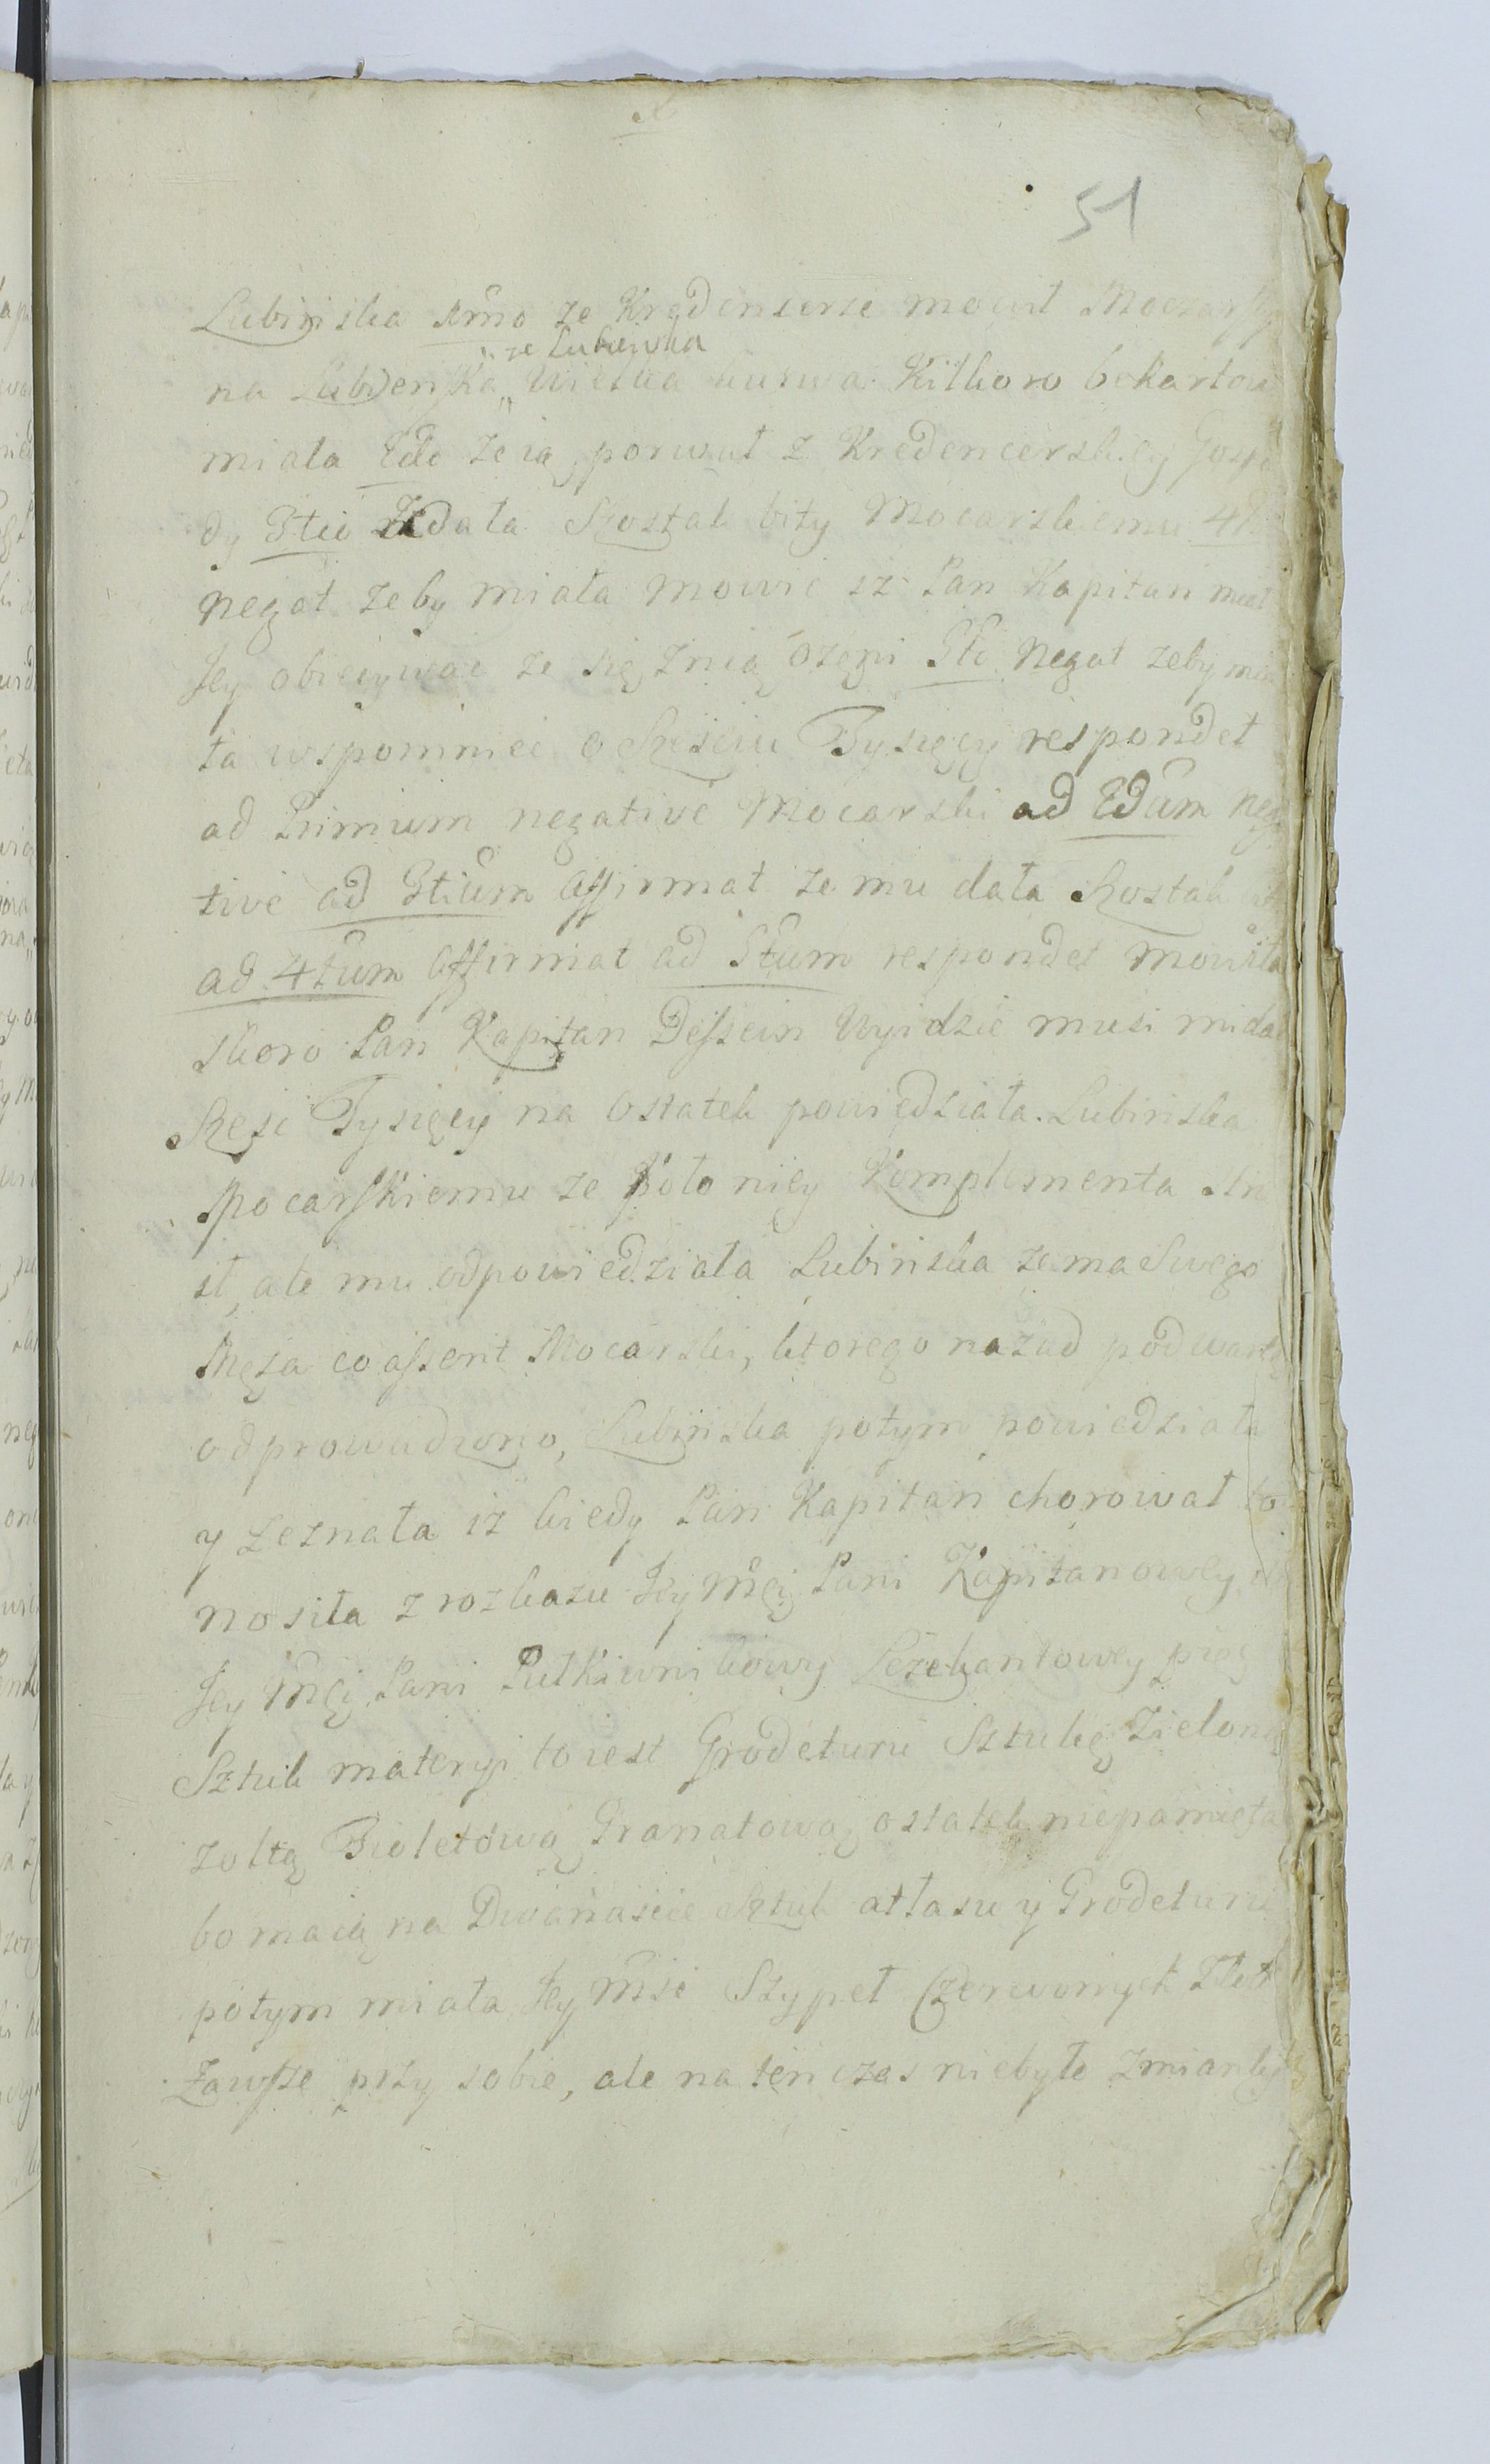 51
Lubinska 1mo ze Kredenserze mowił Moczarsky
"ze Lubienska
na Lubienską „ wielka kurwa Kilkoro bekartow
miała 2do ze ią porwał z Kredencerskiey Gospo
dy 3tio zadała Szostak bity Mocarskiemu 4to
negat zeby miała mowic iz Pan Kapitan miał
Jey obiecywac ze się znią ozeni 5to Negat zeby mia
ła wspomniec o Szesciu Tysięcy respondet
ad Primum negative Mocarski ad 2dum Nega
tive ad 3tium Affirmat ze mu dała Szostak
ad 4tum Affirmat ad 5tum respondet mowiła
skoro Pan Kapitan Dessein Wyidzie musi mi dac
Szesc Tysięcy na Ostatek powiedziała Lubinska
Mocarskiemu ze koło niey Komplementa stro
ił, ale mu odpowiedziała Lubinska ze ma Swego
Męza co asserit Mocarski, ktorego nazad pod wartę
odprowadzono, Lubinska potym powiedziała
y zeznała iz kiedy Pan Kapitan chorował to
nosiła z rozkazu Jey Mci Pani Kapitanowey do
Jey Mci Pani Pułkownikowy Lezehantowey pięc
Sztuk materyi to iest Grodeturu Sztukę Zieloną
zołtą Fioletową Granatową ostatek niepamięta
bo maią na Dwanascie Sztuk atłasu y Grodeturu
potym miała Jey Msc Szypeł Czerwonych Złot
Zawsze przy sobie, ale na ten czas niebyło Zmianky